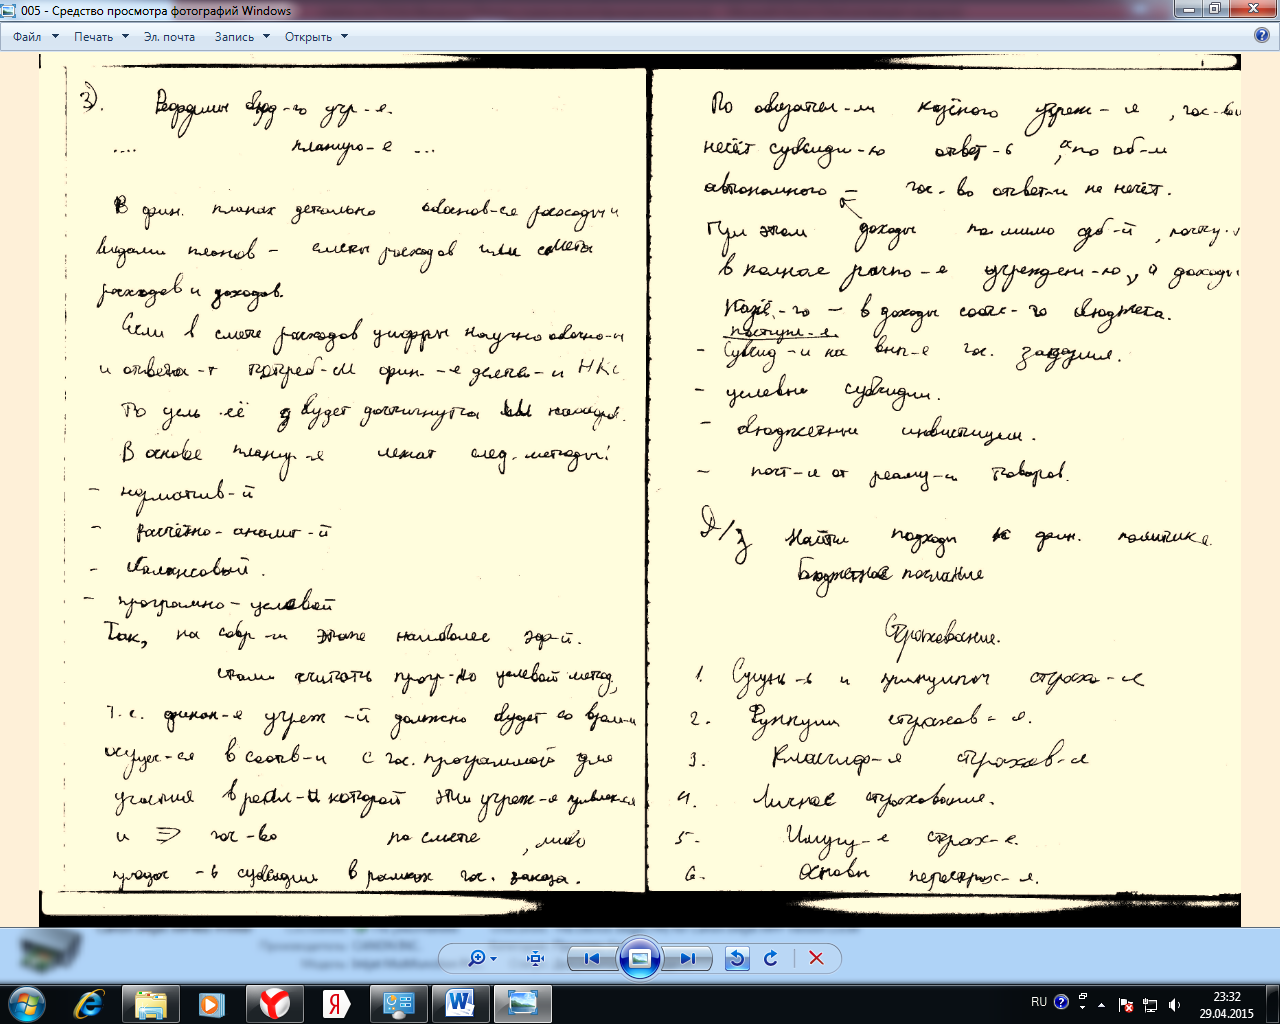 005 - Средство просмотра фотографий Windows
Файл Печать Эл. почта Запись Открыть
3).
бюд-го учр-я.
.... планиро-е ...
В фин. планах детально обоснов-ся расходы и
видами планов - сметы расходов или смета
расходов и доходов.
Если в смете расходов цифры научно обосно-ы
и отвеча-т потреб-м фин.-е деят-и НКО
То цель её будет достигнута
В основе планир-я лежат след. методы:
- норматив-й
- расчётно-аналит-й
- балансовый.
- програмно-целевой
Так, на совр-м этапе наиболее эф-й.
стали считать прогр-но целевой метод,
т.е. финан-е учреж-й должно будет со врем-м
осущ-ся в соотв-и с гос. программой для
участия в реал-и которой эти учреж-я привлек-ся
и гос-во по смете, либо
субсидии в рамках гос. заказа.
По обязател-м казённого учреж-я, гос-во
несёт субсиди-ю ответ-ь, а по об-м
автономного - гос-во ответ-и не несёт.
При этом доходы по мимо
в полное учрежден-ю, а доходы
Казё-го - в доходы соотв-го бюджета.
поступл-я
- Субсид-и на вып-е гос. задания.
- целевые субсидии.
- бюджетные инвестиции.
- пост-я от реализ-и товаров.
Д/з Найти подходы к фин. политике.
Бюджетное послание
Страхование.
1. Сущн-ь и принципы страхо-я
2. Функции страхов-я.
3. Классиф-я страхов-я
4. Личное страхование.
5. Имущ-е страх-е.
6. Основы перестрах-я.
RU
23:32
29.04.2015